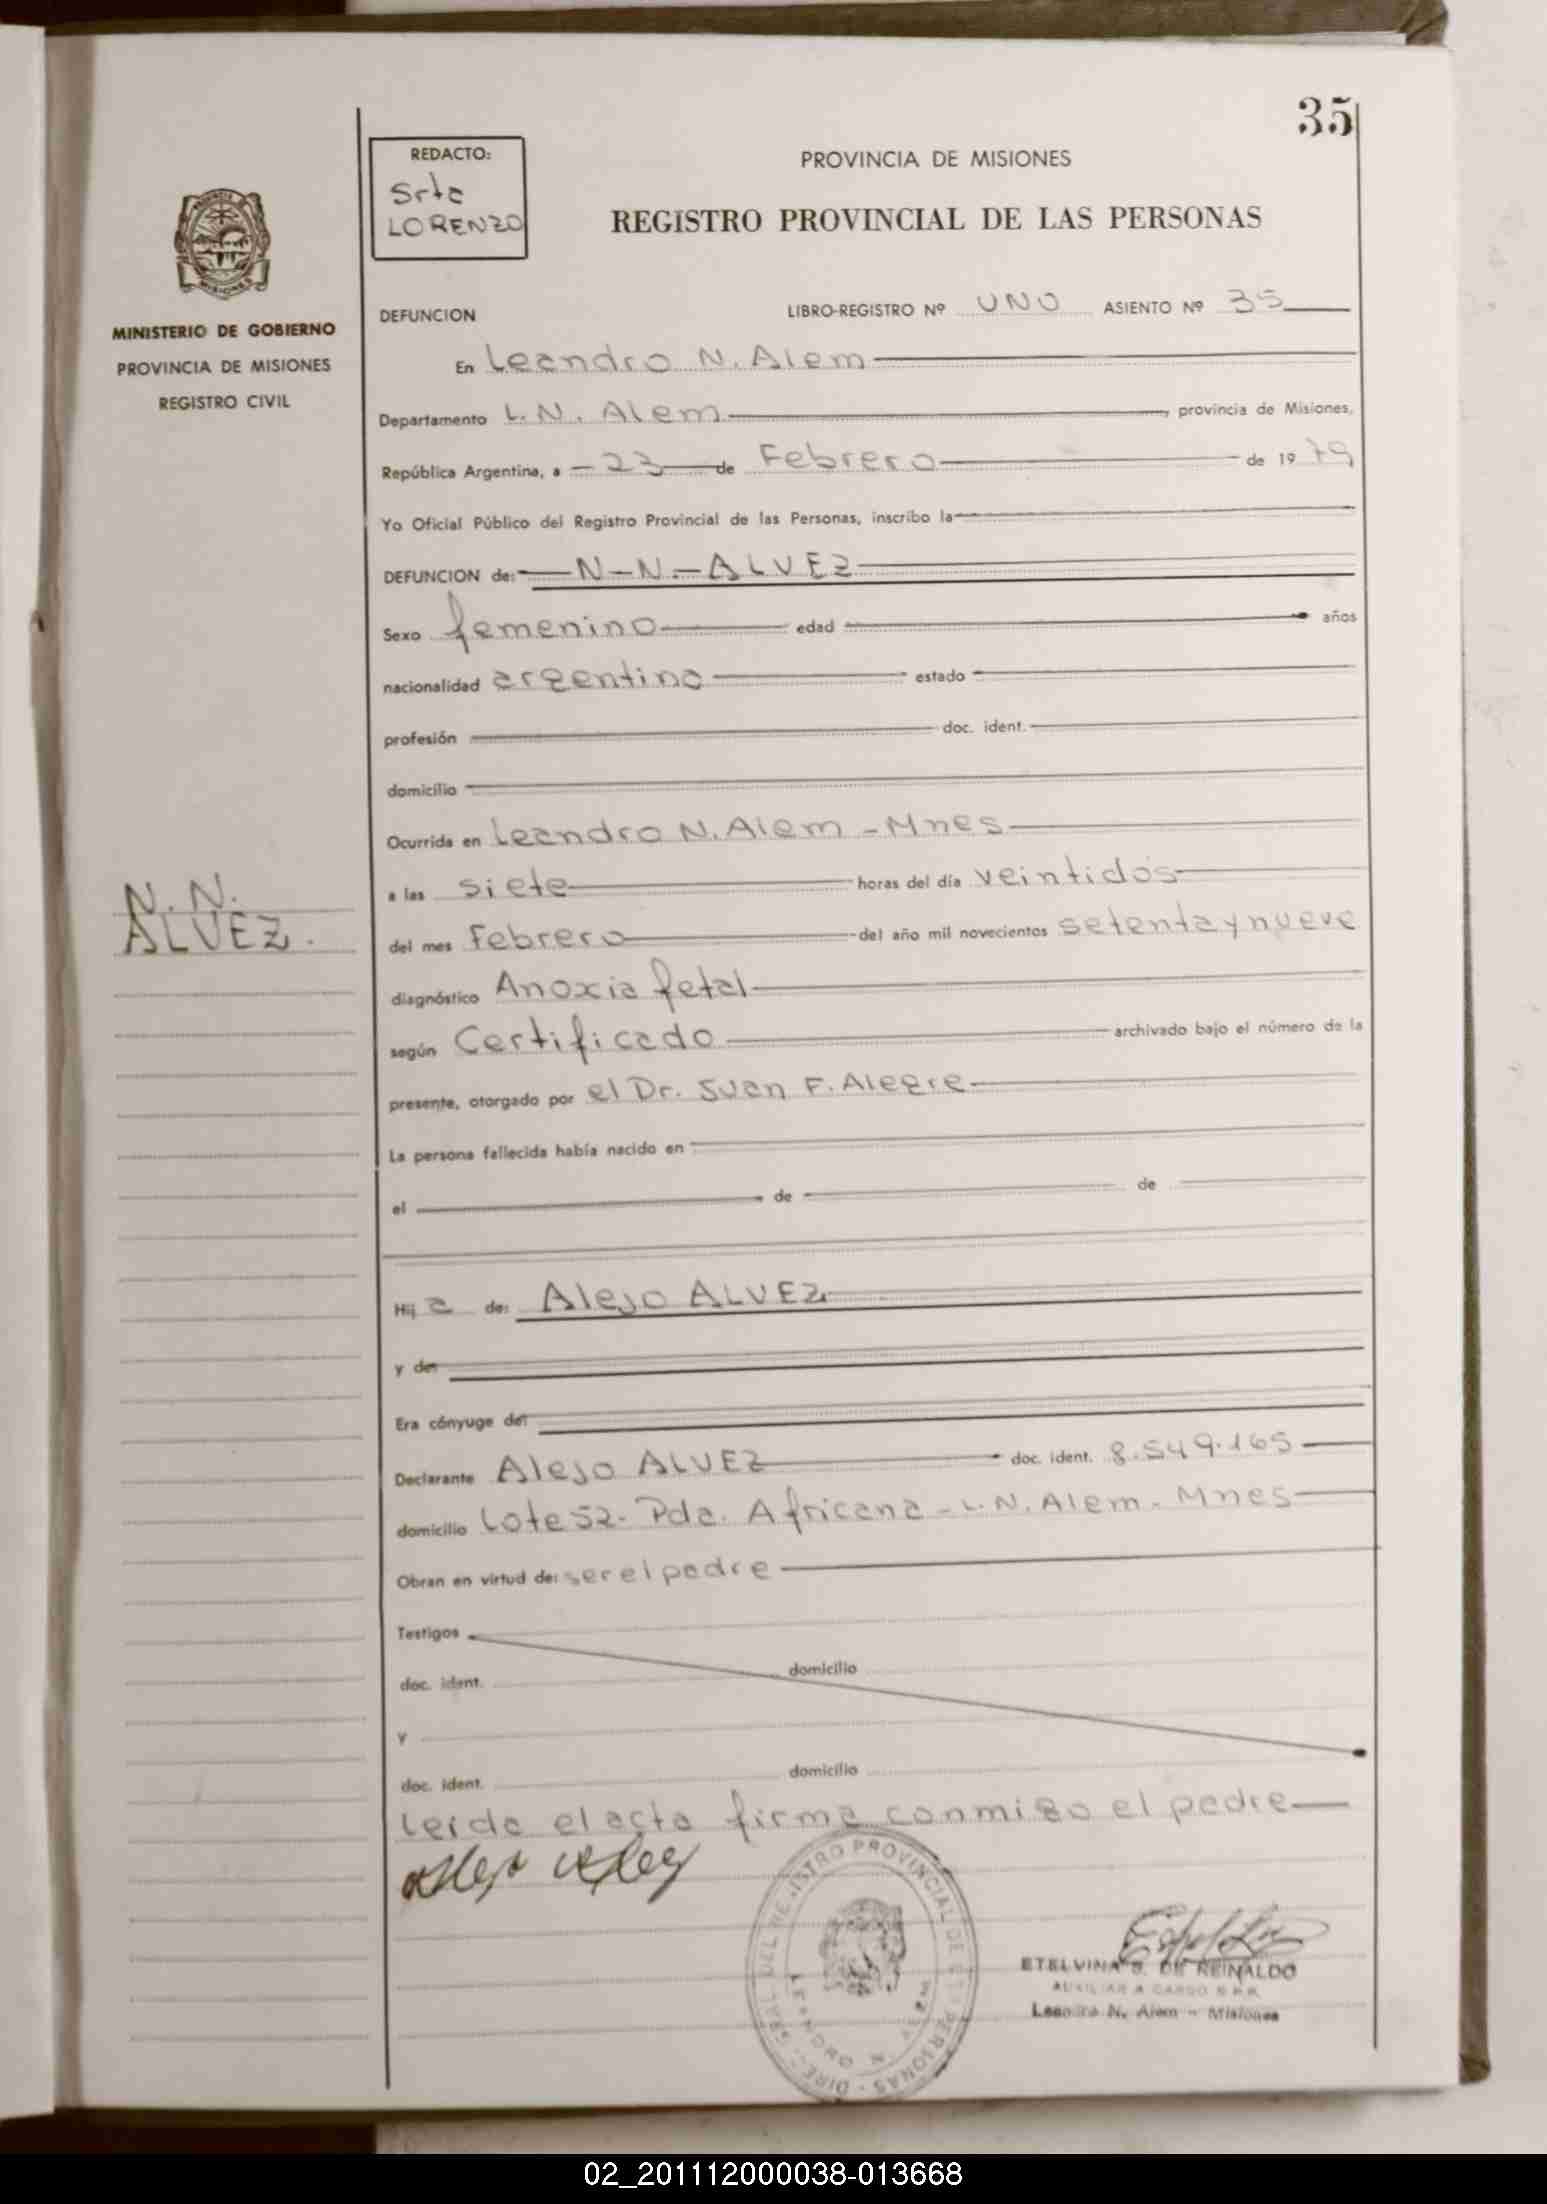 35
REDACTO:
Srta
LORENZO
PROVINCIA DE MISIONES
REGISTRO PROVINCIAL DE LAS PERSONAS
MINISTERIO DE GOBIERNO
PROVINCIA DE MISIONES
REGISTRO CIVIL
DEFUNCION LIBRO-REGISTRO Nº UNO ASIENTO Nº 35
En Leandro N. Alem
Departamento L. N. Alem, provincia de Misiones,
República Argentina, a 23 de Febrero de 1979
Yo Oficial Público del Registro Provincial de las Personas, inscribo la
DEFUNCION de: N-N-ALVEZ
Sexo femenino edad años
nacionalidad argentina estado
profesión doc. ident.
domicilio
Ocurrida en Leandro N. Alem - Mnes
a las siete horas del día veintidós
del mes Febrero del año mil novecientos setenta y nueve
N. N.
ALVEZ.
diagnóstico Anoxia fetal
según Certificado archivado bajo el número de la
presente, otorgado por el Dr. Juan F. Alegre
La persona fallecida había nacido en
el de de
Hija de: Alejo ALVEZ
y de:
Era cónyuge de:
Declarante Alejo ALVEZ doc. ident. 8.549.165
domicilio Lote 52- Pda. Africana - L. N. Alem - Mnes
Obran en virtud de: ser el padre
Testigos
doc. ident. domicilio
y
doc. ident. domicilio
Leída el acta firma conmigo el padre
REGISTRO PROVINCIAL DE LAS PERSONAS
LEANDRO N. ALEM
ETELVINA S. DE REINALDO
AUXILIAR A CARGO R.P.P.
Leandro N. Alem - Misiones
02_201112000038-013668